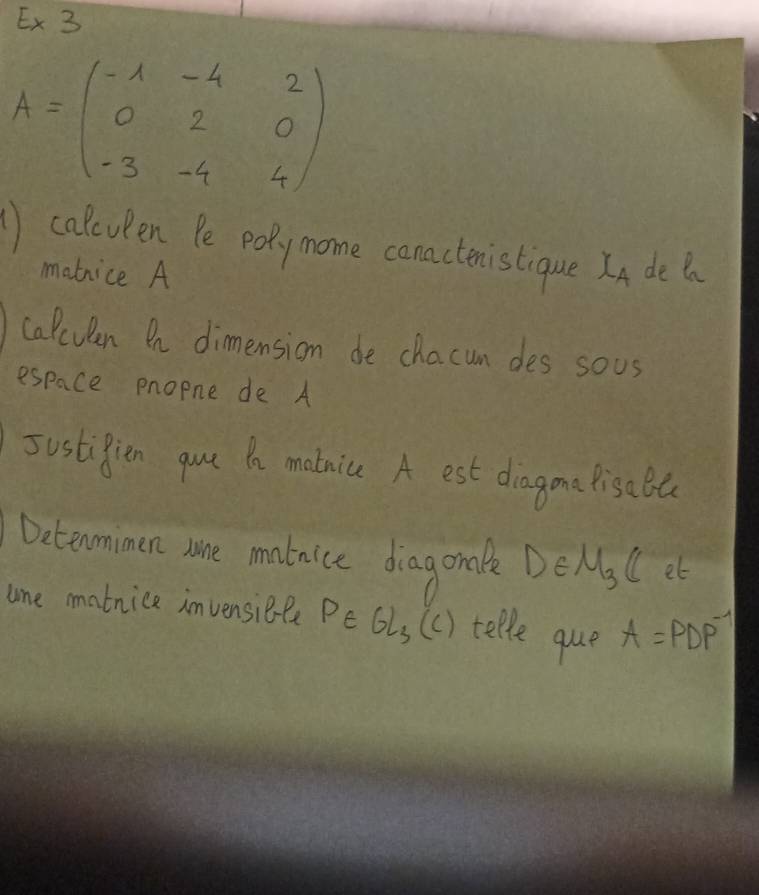 Ex 3
A = (-1 -4 2
0 2 0
-3 -4 4)
1) calculer le polynome caracteristique χA de la
matrice A
) calculer la dimension de chacun des sous
espace propre de A
) Justifier que la matrice A est diagonalisable
) Determiner une matrice diagonale D ∈ M3 ( et
une matrice inversible P ∈ GL3 (C) telle que A = PDP⁻¹